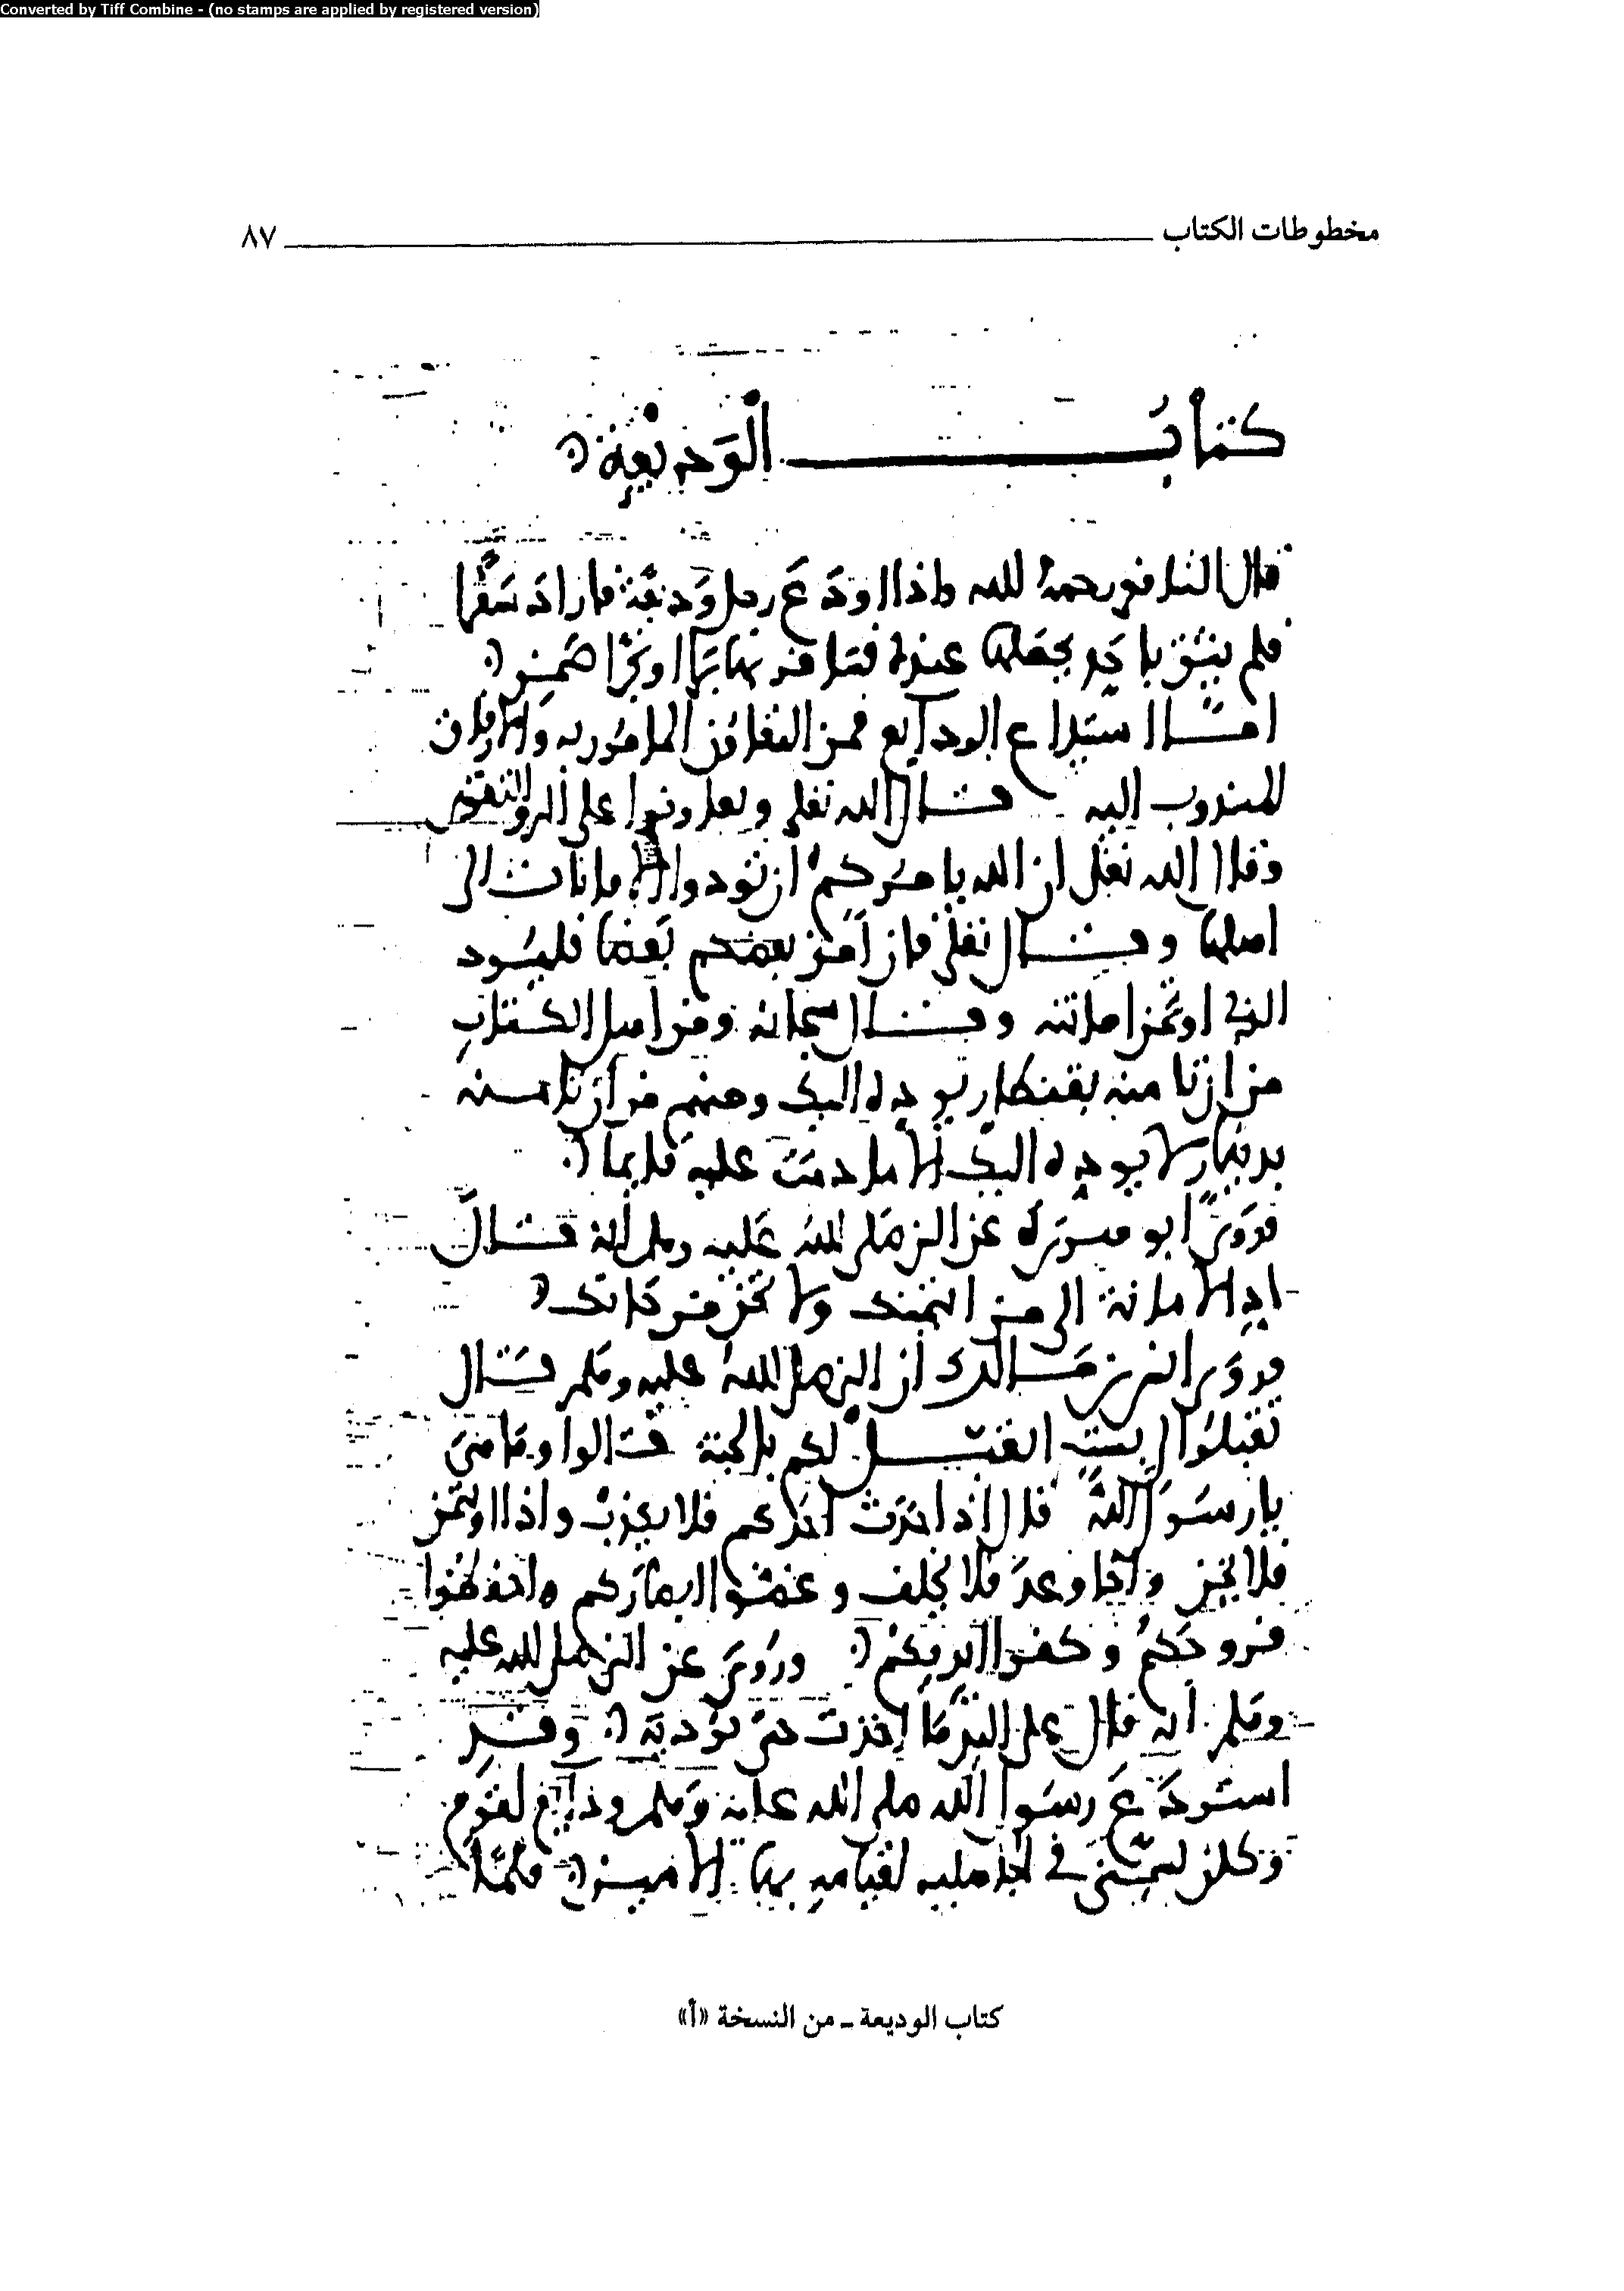 Converted by Tiff Combine - (no stamps are applied by registered version)
مخطوطات الكتاب ٨٧
كتابُ الوَديعَةِ
قال الشافعي رحمهُ الله واذا اودَعَ رجل وَديعَةً فاراد سَفَرًا
فلم يثق باحَدٍ يجعَلها عندهُ فسافر بها بَرًّا او بَحرًا ضَمِن
امَّا استيداع الودايع فمن التعاون المامُور به وَالارفاق
المندوب اليه قال الله تعلى وتعاونوا على البر والتقوى
وقال الله تعلى ان الله يامُركمُ ان تؤدوا الامانات الى
اهلها وقال تعلى فان اَمِنَ بعضكم بَعضًا فليُود
الذي اوتمن امانته وقال سبحانه ومن اهل الكتابِ
من ان تامنه بقنطار يوده اليك ومنهم من ان تامنه
بدينار لا يوده اليك الا ما دمتَ عليه قايماً
فروَى ابو هريرَة عن النبي صَلى اللهُ عَليه وسلم أنهُ قال
ادِ الامانة الى من ائتمنك ولا تخُن من خانك
وروَى انس بن مَالك ان النبي صلى اللهُ عليه وسَلم قَال
تقبلوا لي بست اتقبل لكم بالجنة قالوا ومَا هنَّ
يا رسُولَ اللهِ قال اذا حَدَث اَحَدكم فلا يكذبْ واذا اوتمن
فلا يخن واذا وعدَ فلا يخلف وغضوا ابصاركم واحفظوا
فروجَكمُ وكفوا ايديكم ورُويَ عن النبي صلى الله عليه
وسَلم أنه قال على اليَدِ مَا اخذت حتى تؤديَه وقد
استودَعَ رسُول الله صلى الله عليه وَسلم ودايع لقَوم
وَكان يسمى في الجاهلية لقيامه بها الامين فلمَّا
كتاب الوديعة ــ من النسخة «أ»